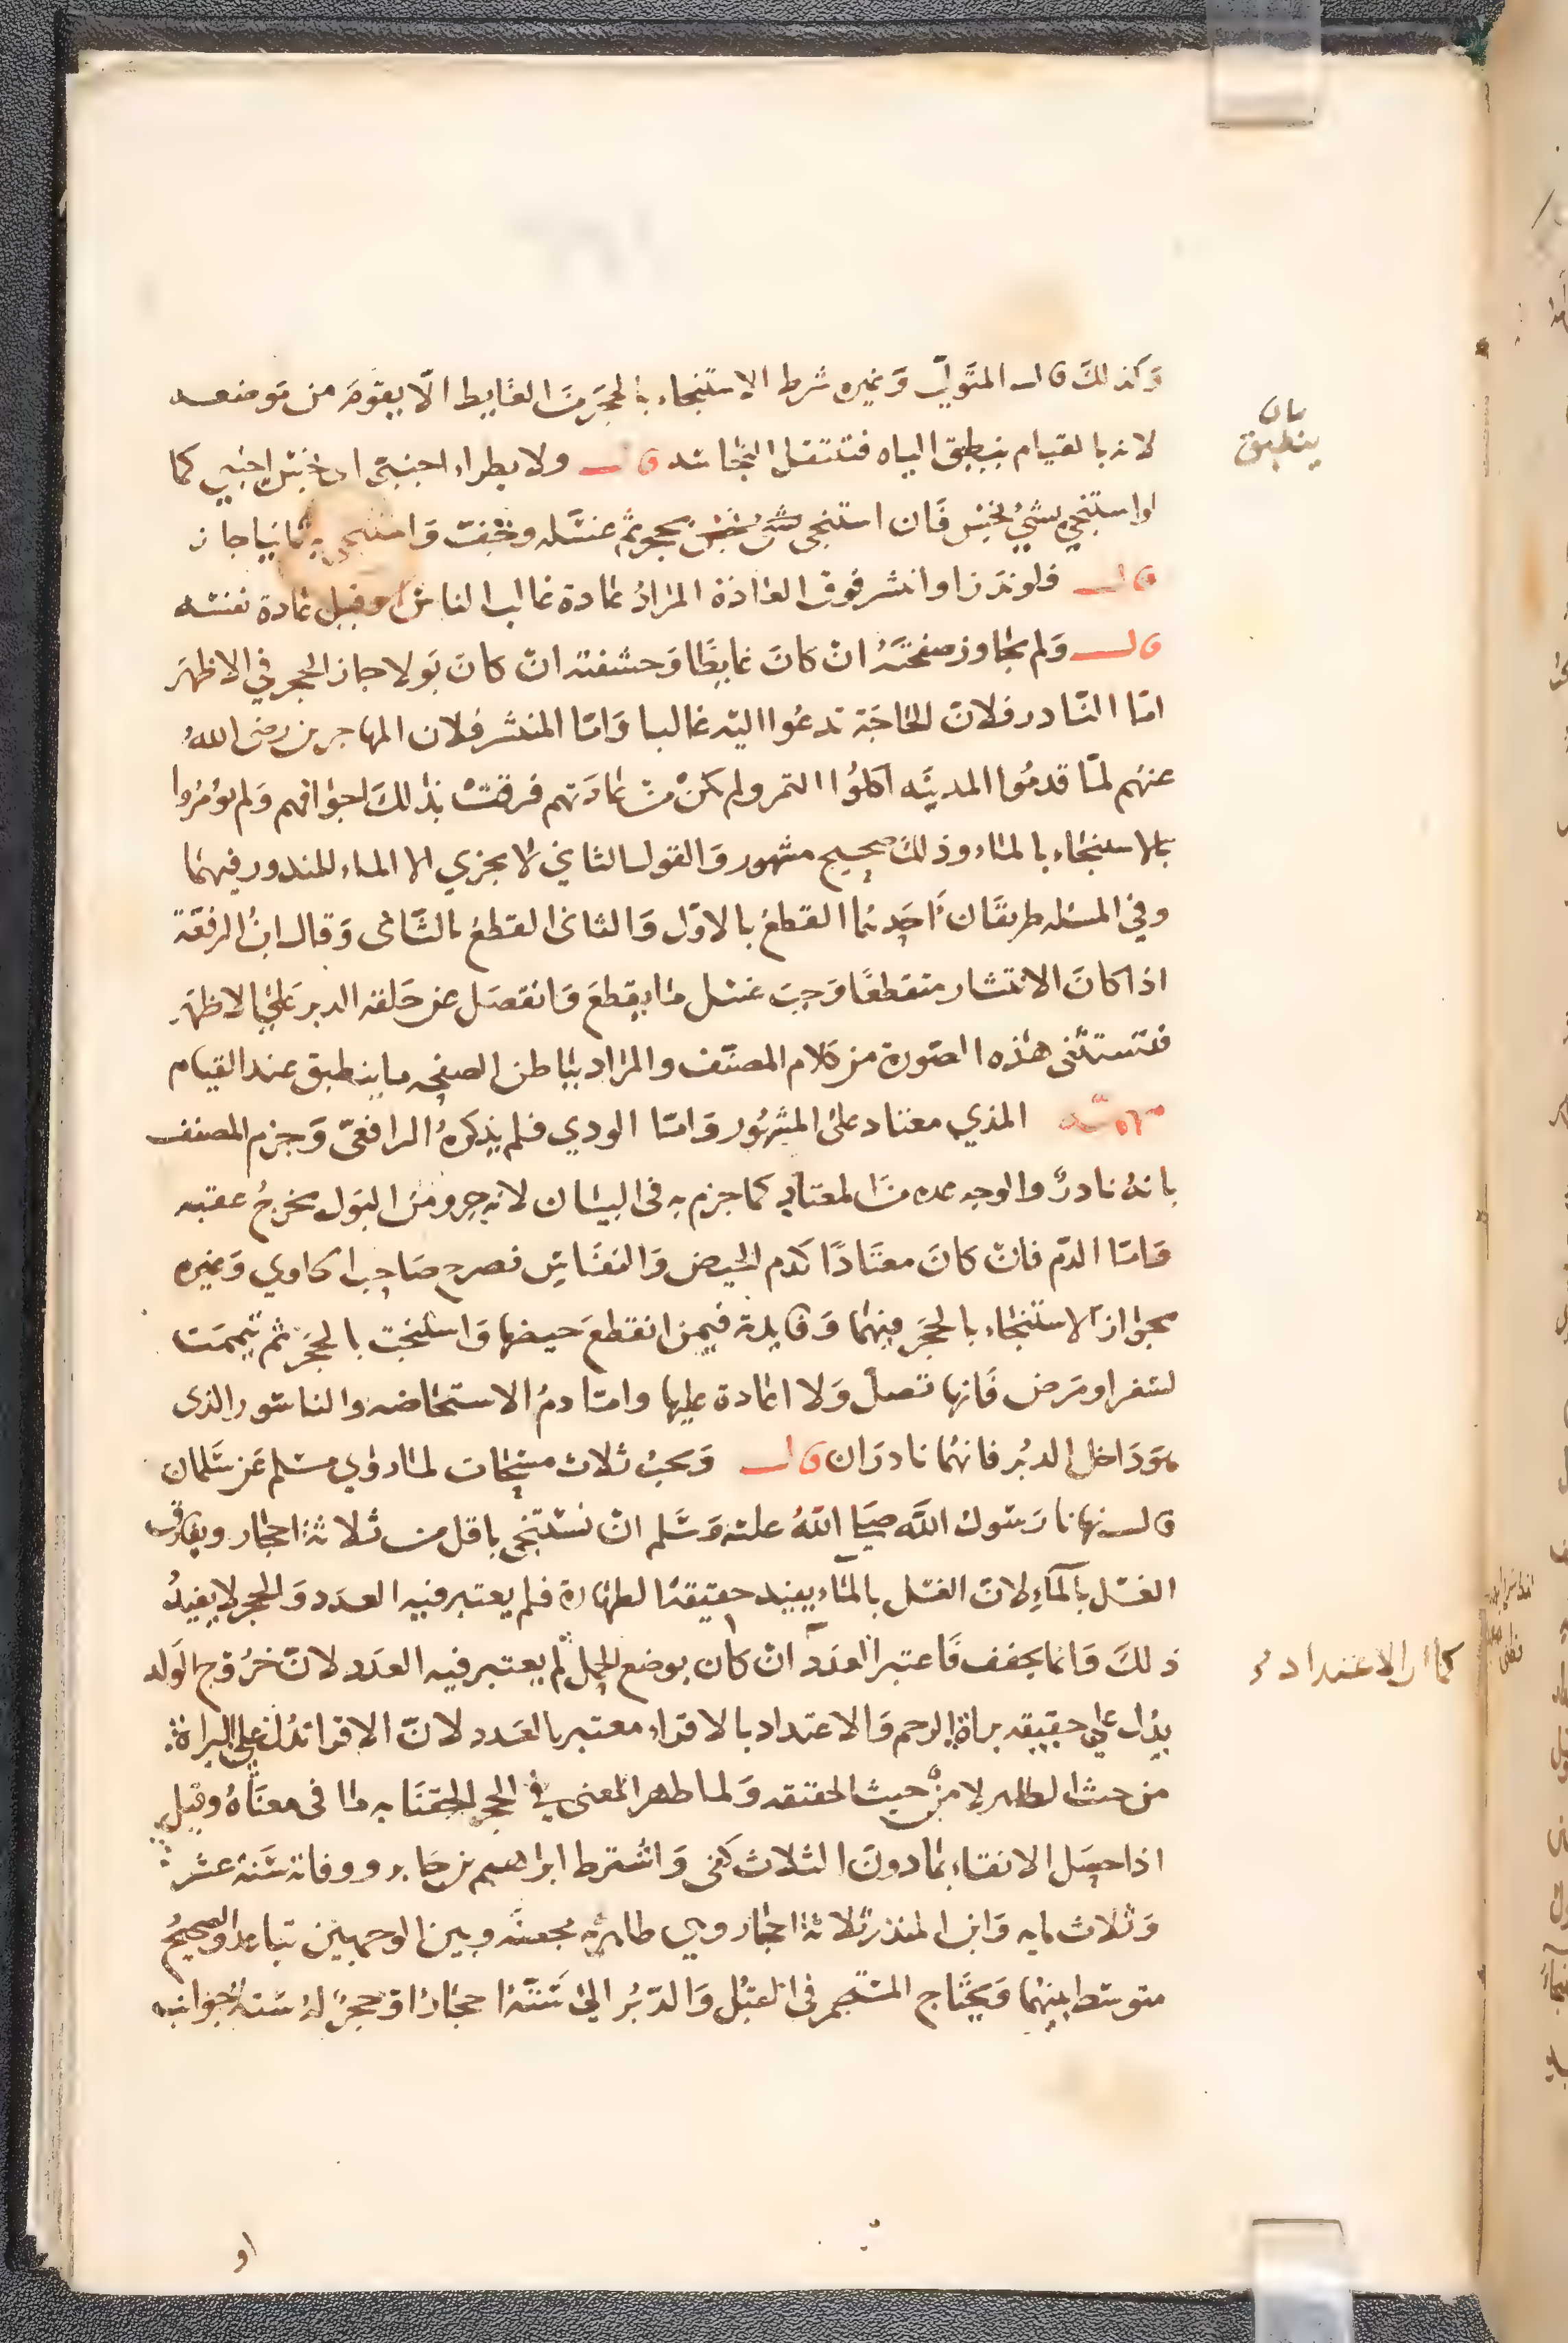 وكذلك قال المتولي وغيره شرط الاستنجاء بالحجر من الغايط الا يقوم من موضعه
لانه بالقيام ينطبق الياه فتنتقل النجاسة قال ولا يطراء اجنبي اي نجس اجنبي كما
لو استنجى بشيء نجس فان استنجى بحجر ثم غسله وجفت واستنجى به ثانيا جاز
قال فلو ندر او انتشر فوق العادة المراد عادة غالب الناس وقيل عادة نفسه
قال ولم يجاوز صفحته ان كان غايطا وحشفته ان كان بولا جاز الحجر في الاظهر
اما النادر فلان الحاجة تدعوا اليه غالبا واما المنتشر فلان المهاجرين رضي الله
عنهم لما قدموا المدينه اكلوا التمر ولم يكن من عادتهم فرقت بذلك اجوافهم ولم يؤمروا
بالاستنجاء بالماء وذلك صحيح مشهور والقول الثاني لا يجزي الا الماء للندور فيهما
وفي المسله طريقان احدهما القطع بالاول والثاني القطع بالثاني وقال ابن الرفعة
اذا كان الانتشار متقطعا وجب غسل ما يقطع وانفصل عن حلقة الدبر على الاظهر
فتستثنى هذه الصورة من كلام المصنف والمراد بباطن الصفحه ما ينطبق عند القيام
تنبيه المذي معتاد على المشهور واما الودي فلم يذكره الرافعي وجزم المصنف
بانه نادر والوجه عده من المعتاد كما جزم به في البيان لانه جرو من البول يخرج عقبه
واما الدم فان كان معتادا كدم الحيض والنفاس فصرح صاحب الحاوي وغيره
بجواز الاستنجاء بالحجر فيهما وفايدته فيمن انقطع حيضها واستنجت بالحجر ثم تيممت
لسفر او مرض فانها تصلي ولا اعادة عليها واما دم الاستحاضه والناسور الذي
هو داخل الدبر فانهما نادران قال ويجب ثلاث مسحات لما روي مسلم عن سلمان
قال نهانا رسول الله صلى الله عليه وسلم ان نستنجي باقل من ثلاثة احجار ويفارق
الغسل بالماء لان الغسل بالماء يفيد حقيقة الطهارة فلم يعتبر فيه العدد والحجر لا يفيد
ذلك وانما يخفف فاعتبر العدد ان كان بوضع الحمل لم يعتبر فيه العدد لان خروج الولد
يدل على حقيقه براة الرحم والاعتداد بالاقراء معتبر بالعدد لان الاقرا تدل على البراة
من حيث الظاهر لا من حيث الحقيقه ولما ظهر المعنى في الحجر الحقنا به ما في معناه وقيل
اذا حصل الانقاء بما دون الثلاث كفى واشترط ابراهيم بن جابر ووفاته سنة عشر
وثلاث مايه وابن المنذر ثلاثة احجار وبين الوجهين تباعد والصحيح
متوسط بينهما ويحتاج المستجمر في القبل والدبر الى ستة احجار او حجر له ستة جوانب
بيان
ينطبق
كما ان الاعتداد
او